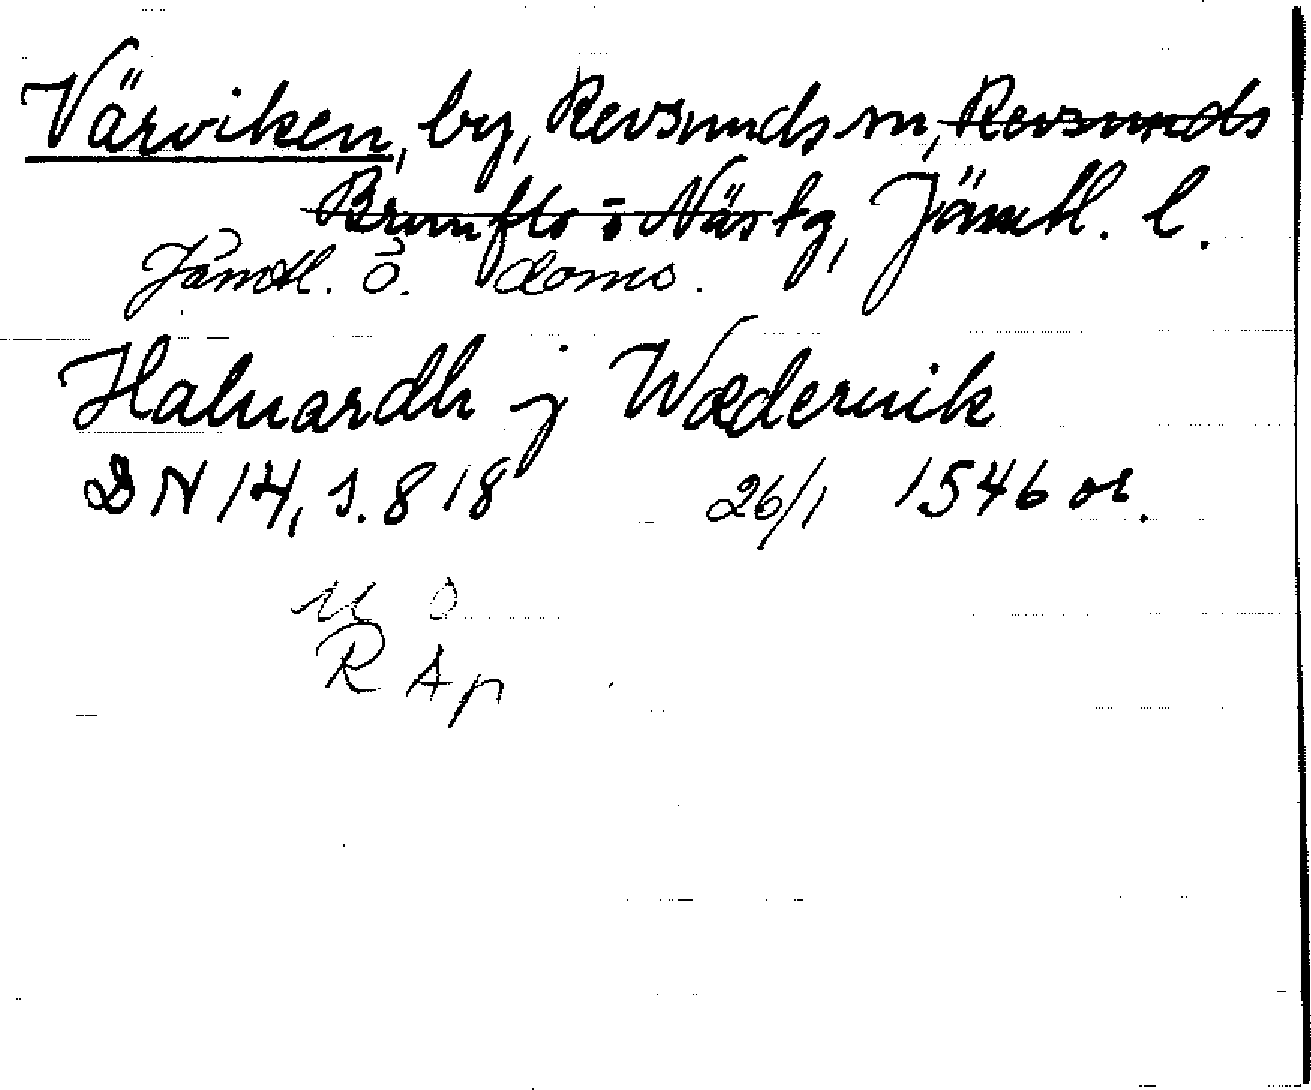 Värviken, by, Revsunds sn, Revsunds
Brunflo o Näs tg, Jämtl. l.
Jämtl. ö. doms.
Haluardh j Wædervik
DN 14, s. 818 26/1 1546 or.
U O
R Ap